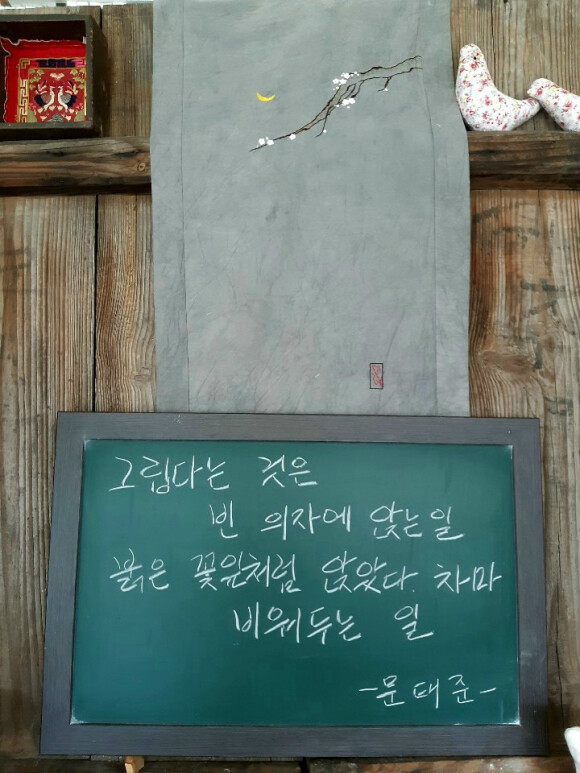 그립다는 것은
빈 의자에 앉는일
붉은 꽃잎처럼 앉았다. 차마
비워두는 일
-문태준-